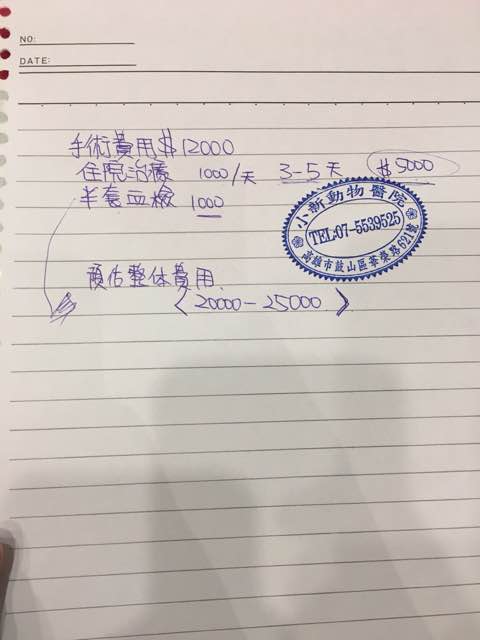 NO:
DATE:
手術費用$12000
住院治療 1000/天 3-5天 $5000
半套血檢 1000
小新動物醫院
TEL:07-5539525
高雄市鼓山區華榮路621號
預估整体費用
(20000-25000)